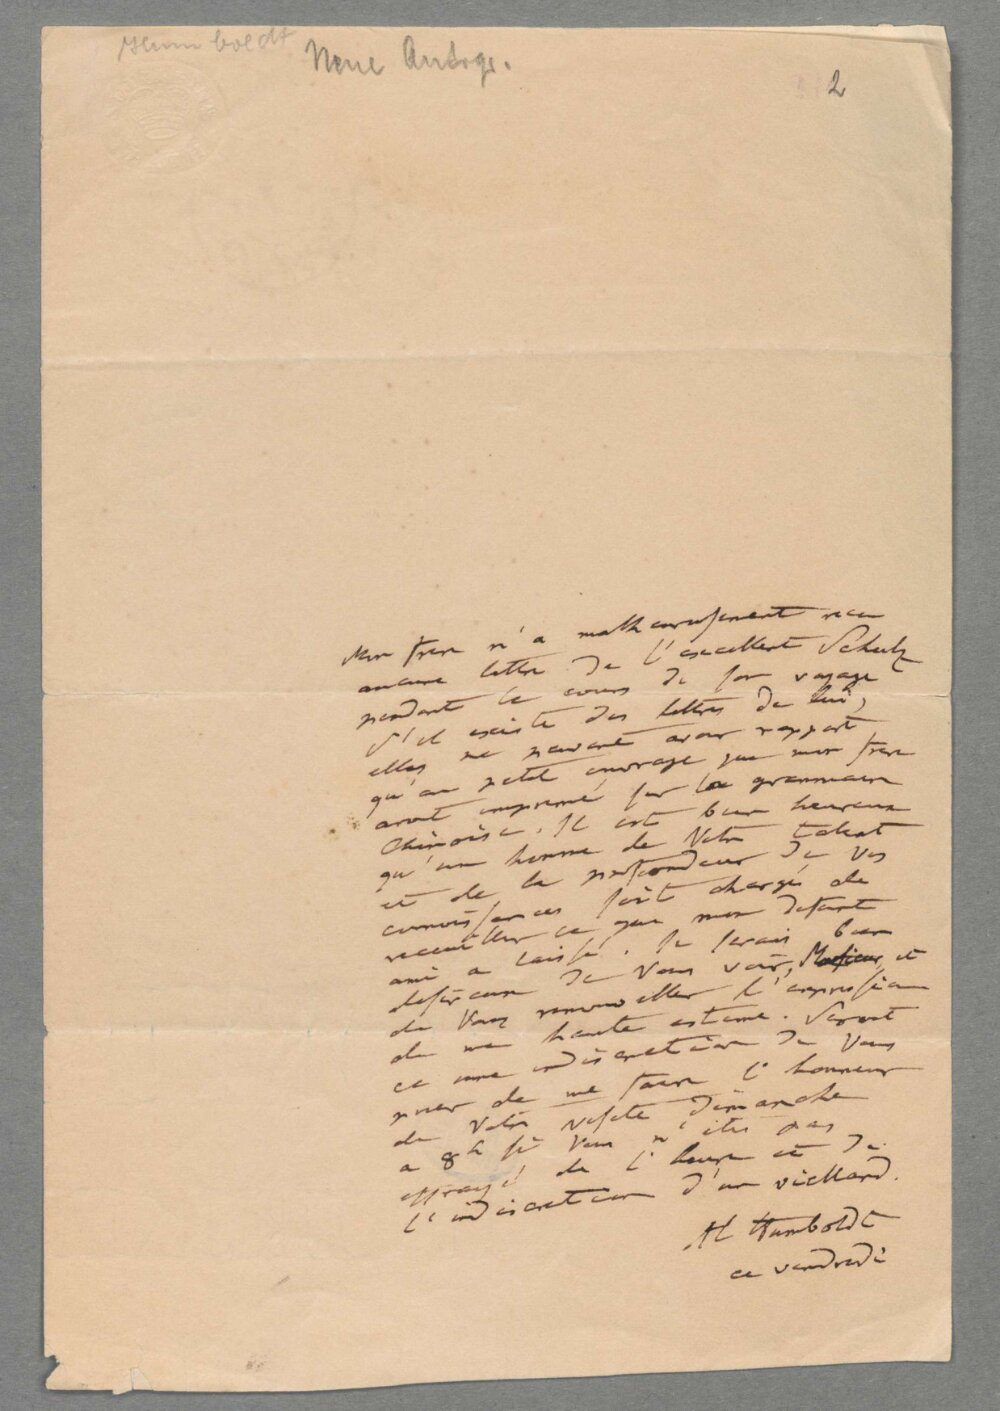 Humboldt
Neue Autogr.
2
Mon frere n'a malheureusement recu
aucune lettre de l'excellent Schulz
pendant le cours de son voyage
S'il existe des lettres de lui,
elles ne peuvent avoir rapport
qu'au petit ouvrage que mon frere
avoit imprimé sur la grammaire
Chinoise. Il est bien heureux
qu'un homme de Votre talent
et de la profondeur de vos
connoissances soit chargé de
recueillir ce que mon defunt
ami a laissé. Je serais bien
desireux de Vous voir, Monsieur, et
de Vous renouveller l'expression
de ma haute estime. Seroit
ce une indiscretion de Vous
prier de me faire l'honneur
de Votre visite Dimanche
a 8h si Vous n'etes pas
effrayé de l'heure et de
l'indiscretion d'un viellard.
Al Humboldt
ce vendredi